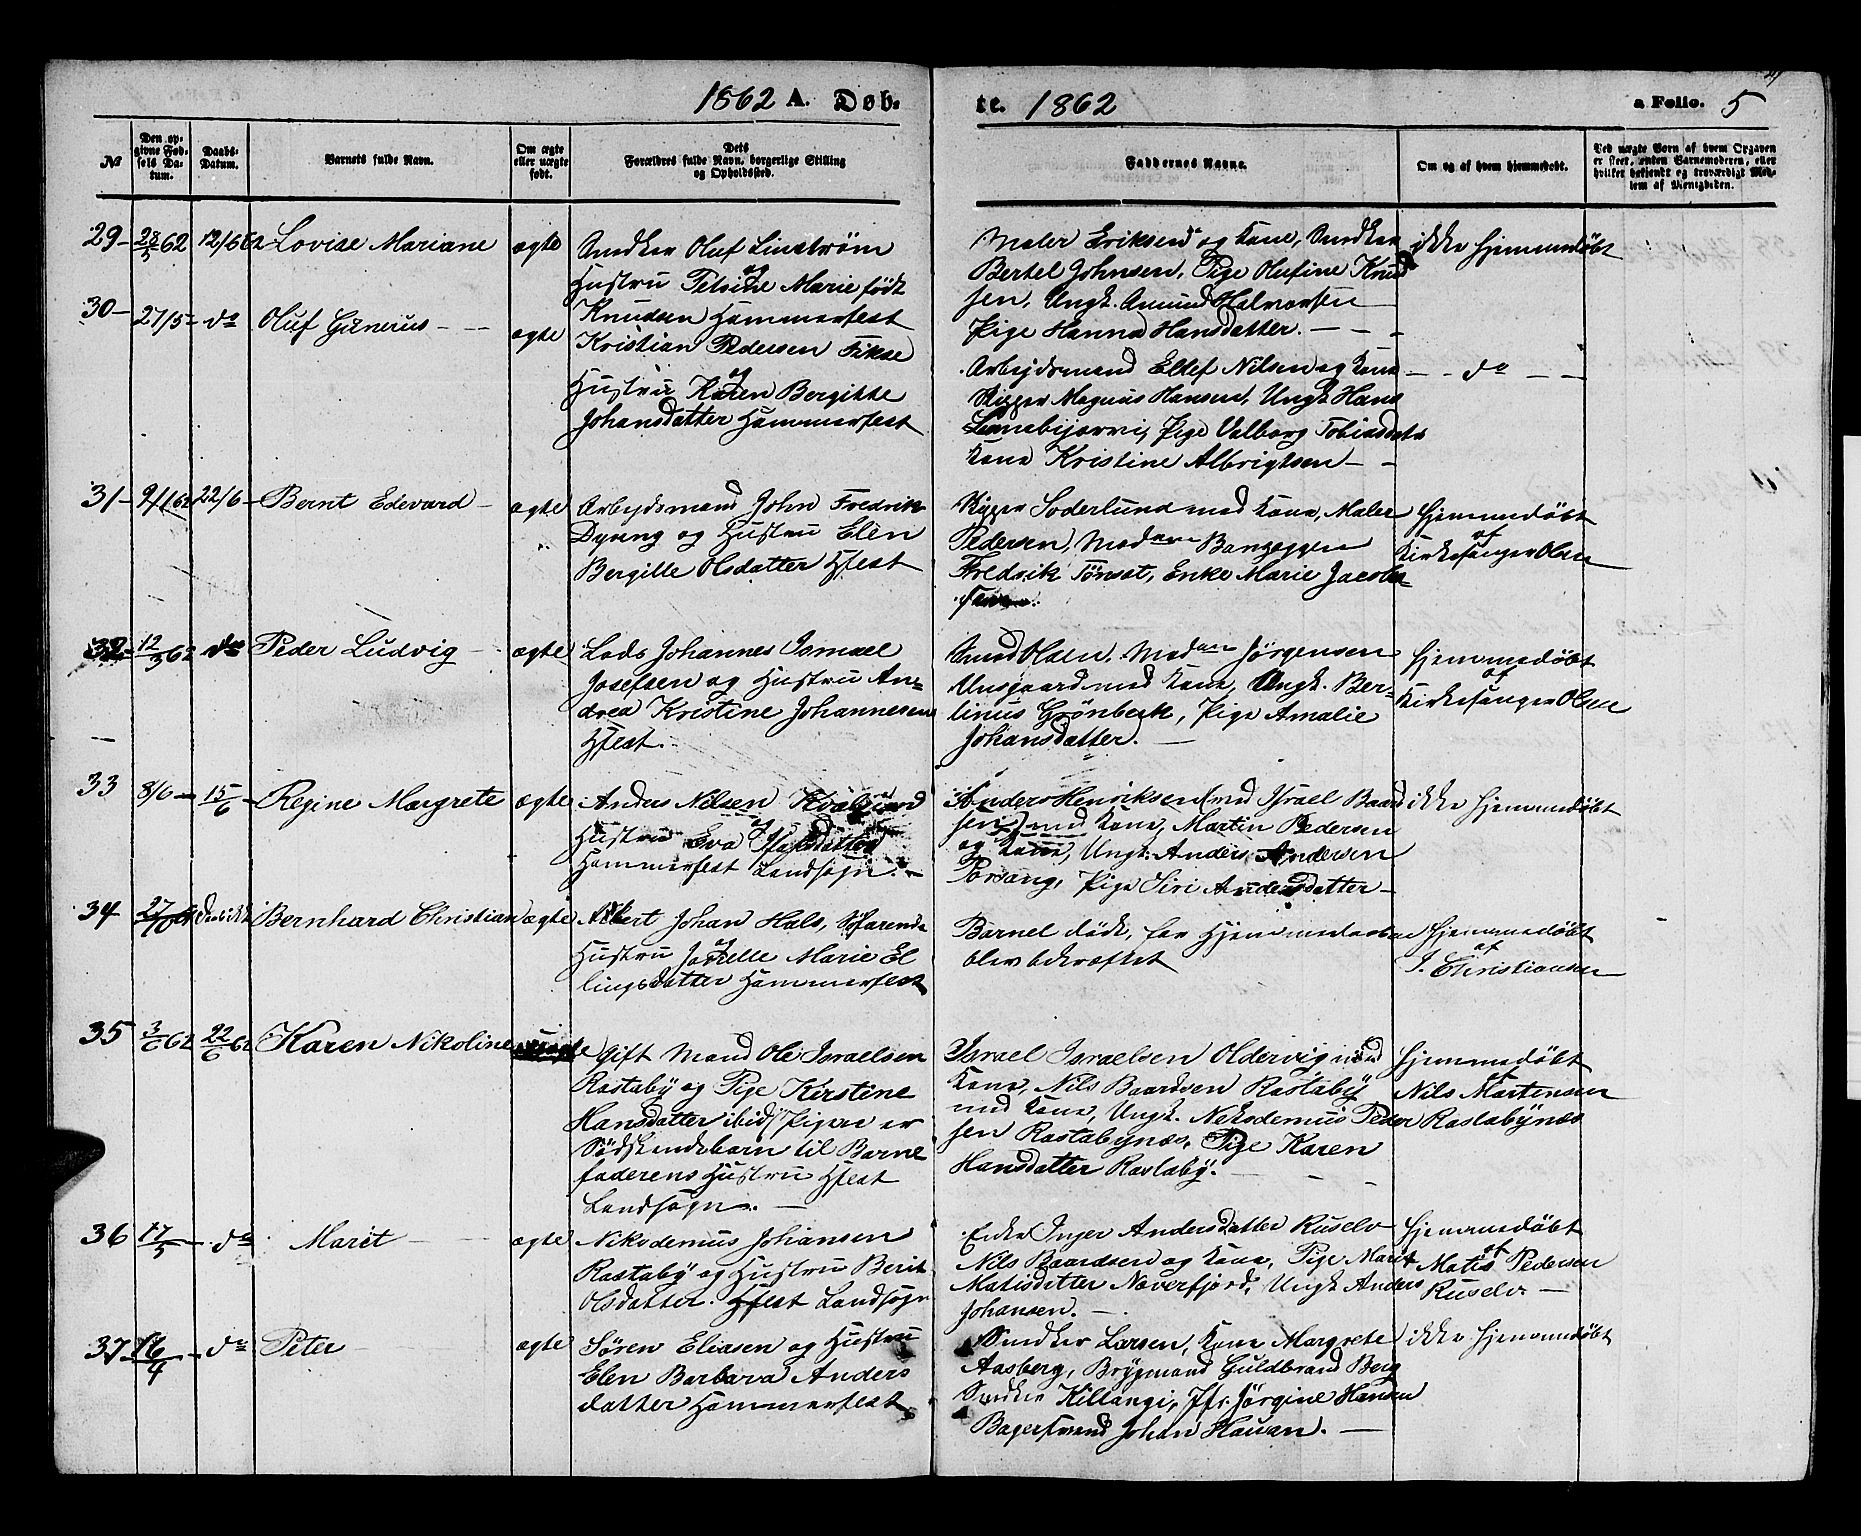 1862 A. Døb-
te. 1862
a Folio. 5
№
Den op-
givne Fød-
sels Da-
tum.
Daabs-
Datum.
Barnets fulde Navn.
Om ægte
eller uægte
født.
Dets
Forældres fulde Navn, borgerlige Stilling
og Opholdssted.
Faddernes Navne.
Om og af hvem hjemmedøbt.
Ved uægte Børn af hvem Opgaven
er skeet, enten Barnemoderen, eller
hvilket bekjendt og troværdigt Med-
lem af Menigheden.
29 - 28/5 62 12/6 62 Lovise Mariane ægte
Snedker Oluf Linstrøm
Hustru Petrine Marie født
Knudsen Hammerfest
Maler Eriksen og Kone, Snedker
Bertel Johnsen, Pige Olufine Knud
sen, Ungk. Amund Halvorsen
Pige Hanna Hansdatter. - - -
ikke hjemmedøbt
30 - 27/5 - do Oluf Gunerus - - - ægte
Kristian Pedersen Fikse
Hustru Karen Bergitte
Johansdatter Hammerfest
Arbejdsmand Ellef Nilsen og Kone
Rigger Magnus Hansen, Ungk Hans
Pige Valborg Tobiasdatr
Kone Kristine Albrigtsen - -
- - do - -
31 - 9/1 62 22/6 - Bernt Edevard - ægte
Arbejdsmand John Fredrik
Dyreng og Hustru Elen
Bergitte Olsdatter Hfest
Rigger Soderlund med Kone, Maler
Pedersen, Madame
Fredrik Tønset, Enke Marie Jacob-
sen.
hjemmedøbt
af
Kirkesanger Olsen
32 - 12/3 62 do Peder Ludvig - ægte
Lods Johannes Ismael
Josefsen og Hustru An-
drea Kristine Johannesen
Hfest.
Smed Olsen, Madam Jørgensen
Unsgaard med Kone, Ungk. Ber-
linus Grønbeck, Pige Amalie
Johansdatter. -
hjemmedøbt
af
Kirkesanger Olsen
33 8/6 - 15/6 - Regine Margrete ægte
Anders Nilsen Kvalsund
og
Hustru Eva Isaksdatter
Hammerfest Landsogn. -
Anders Henriksen (med Israel Baard
sen) med Kone, Martin Pedersen
og Kone, Ungk. Anders Andersen
Porsang, Pige Siri Andersdatter -
ikke hjemmedøbt
34 Bernhard Christian ægte
Albert Johan Hals, Søfarende
og
Hustru Jørelle Marie El
lingsdatter Hammerfest
Barnet døde, før Hjemmedaaben
blev bekræftet
hjemmedøbt
af
J. Christiansen
35 3/6 62 22/6 62 Karen Nikoline uægte
Gift Mand Ole Israelsen
Rastaby og Pige Kirstine
Hansdatter ibid/Pigen er
Sødskendebarn til Barne
faderens Hustru Hfest
Landsogn. -
Israel Israelsen Oldervig med
Kone, Nils Baardsen Rastaby
med Kone, Ungk. Nikodemus Peder
sen Rastabynæs, Pige Karen
Hansdatter Rastaby. -
hjemmedøbt
af
Nils Mortensen
Rastabynæs
36 17/5 - do Marit - ægte
Nikodemus Johansen
Rastaby og Hustru Berit
Olsdatter. Hfest Landsogn
Enke Inger Andersdatter Ruselv
Nils Baardsen og Kone, Pige Marit
Matisdatter Næverfjord, Ungk Anders
Johansen. -
hjemmedøbt
af
Matis Pedersen
Ruselv -
37 16/4 - do Peter - ægte
Søren Eliasen og Hustru
Elen Barbara Anders
datter Hammerfest
Snedker Larsen, Kone Margrete
Aasberg, Brygmand Guldbrand Berg
Snedker Killangi, Jfr. Jørgine Hansen
Bagersvend Johan Hauan. -
ikke hjemmedøbt